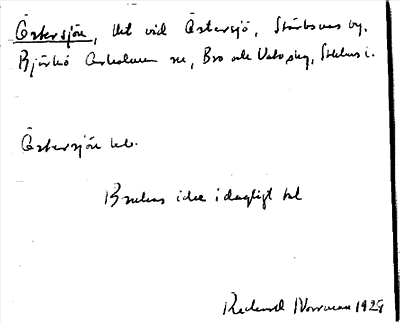 Östersjön, Ut vid Östersjö, Stärbsnäs by,
Björkö Arholma sn, Bro och Vätö skg, Sthlms l.
Östersjön
Brukas icke i dagligt tal
Richard Norrman 1929